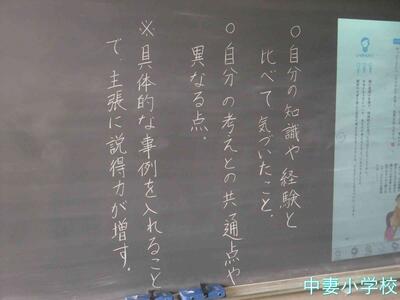 ○自分の知識や経験と
比べて気づいたこと。
○自分の考えとの共通点や
異なる点。
※具体的な事例を入れること
で、主張に説得力が増す。
中妻小学校